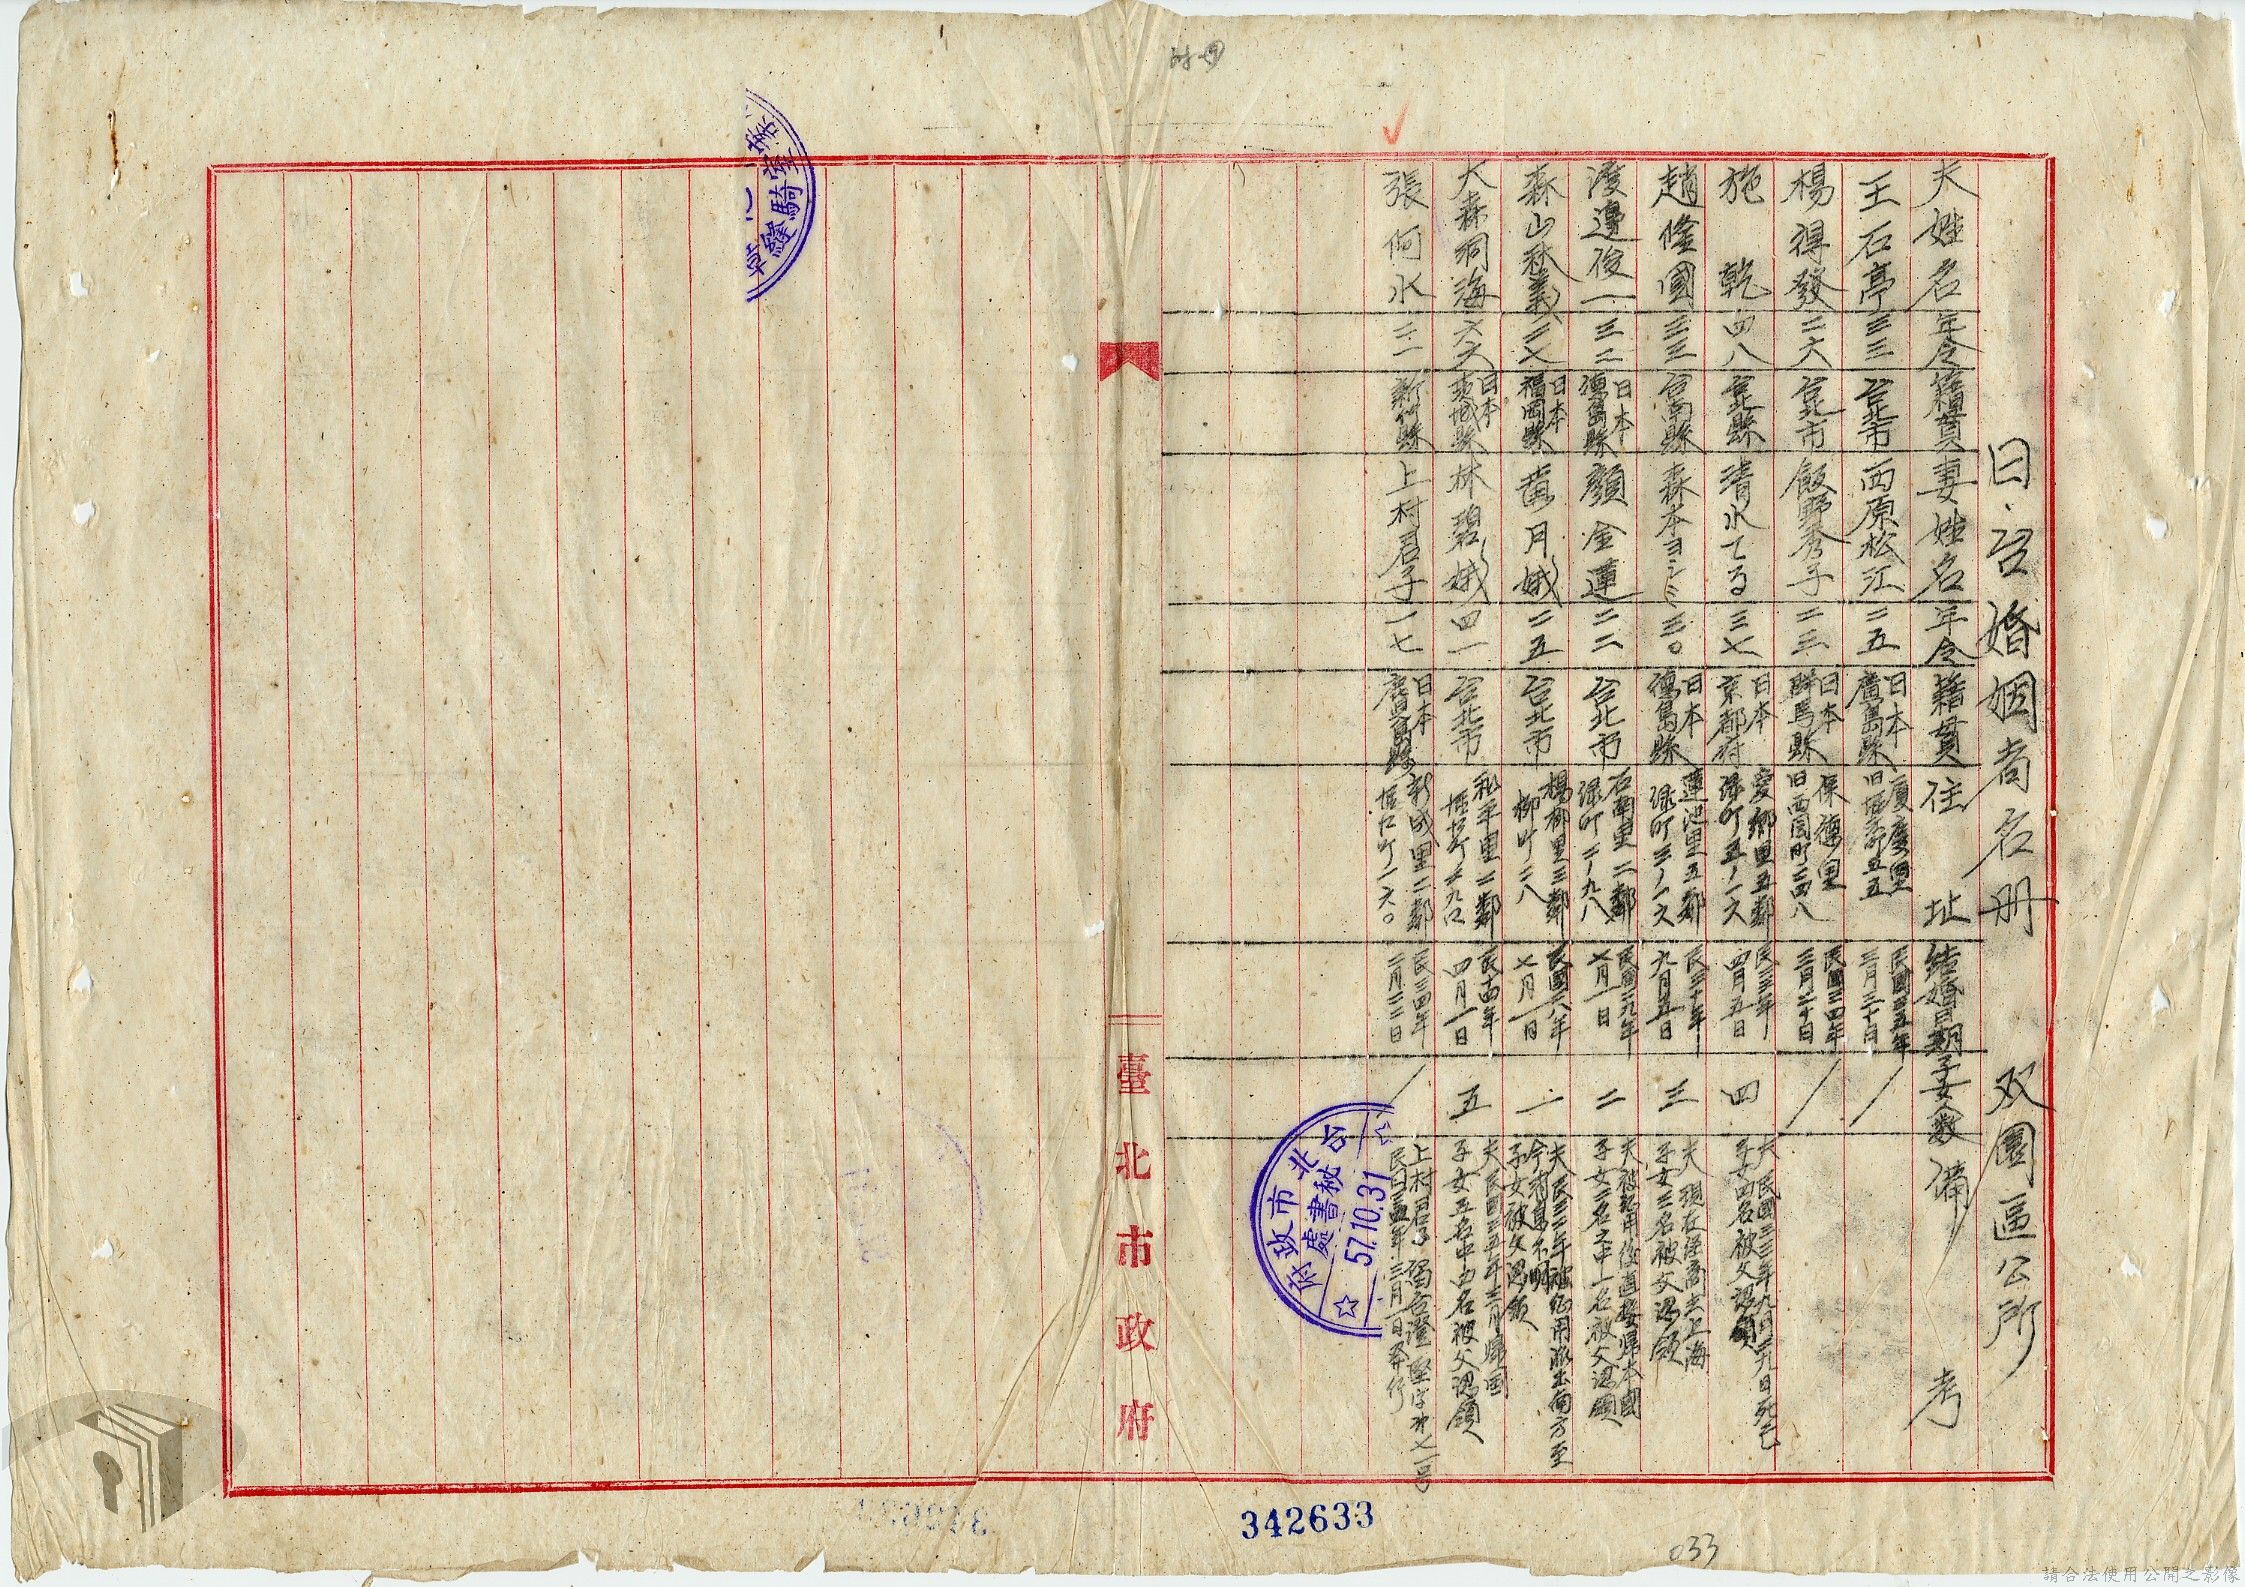 日台婚姻者名册 双園區公所
夫姓名 年令 籍貫 妻姓名 年令 籍貫 住址 結婚日期 子女人数 備考
王石亭 三三 台北市 西原松江 二五 日本廣島縣 厦慶里旧堀江町五五 民國三五年三月三十日 /
楊得發 二六 台北市 飯野秀子 二三 日本群馬縣 保德里旧西園町二四八 民國三四年三月二十日 /
施乾 四八 台北縣 清水てる 三七 日本京都府 愛鄉里五鄰綠町五ノ一六 民二三年四月五日 四 夫民國三三年九月 日死亡子女四名被父認領
趙 國 三三 台南縣 森本ヨシミ 三〇 日本德島縣 蓮池里五鄰綠町三ノ一六 民三十年九月五日 三 夫現在經商去上海子女三名被父認領
渡邊俊一 三二 日本德島縣 顏金蓮 二二 台北市 里二鄰綠町二ノ九八 民國二九年七月一日 二 夫被起用後直接歸本國子女二名之中一名被父認領
森山 義 日本福岡縣 黃月娥 二五 台北市 楊柳里三鄰柳町二八 民國二八年七月一日 一 夫民三三年被徵用派出南方至今消息不明子女被父認領
大森洞海 六六 日本茨城縣 林碧娥 四一 台北市 和平里二鄰堀江町二九〇 民十四年四月一日 五 夫民國三五年三月歸國子女五名中四名被父認領
張何水 三一 新竹縣 上村君子 一七 日本鹿兒島縣 新成里二鄰堀江町一六〇 民三四年二月二三日 / 上村君子留台證 字 七一号民國三五年三月一日發行
臺北市政府
台北市政府
秘書處
57.10.31
騎縫章
342633
033
請合法使用公開之影像